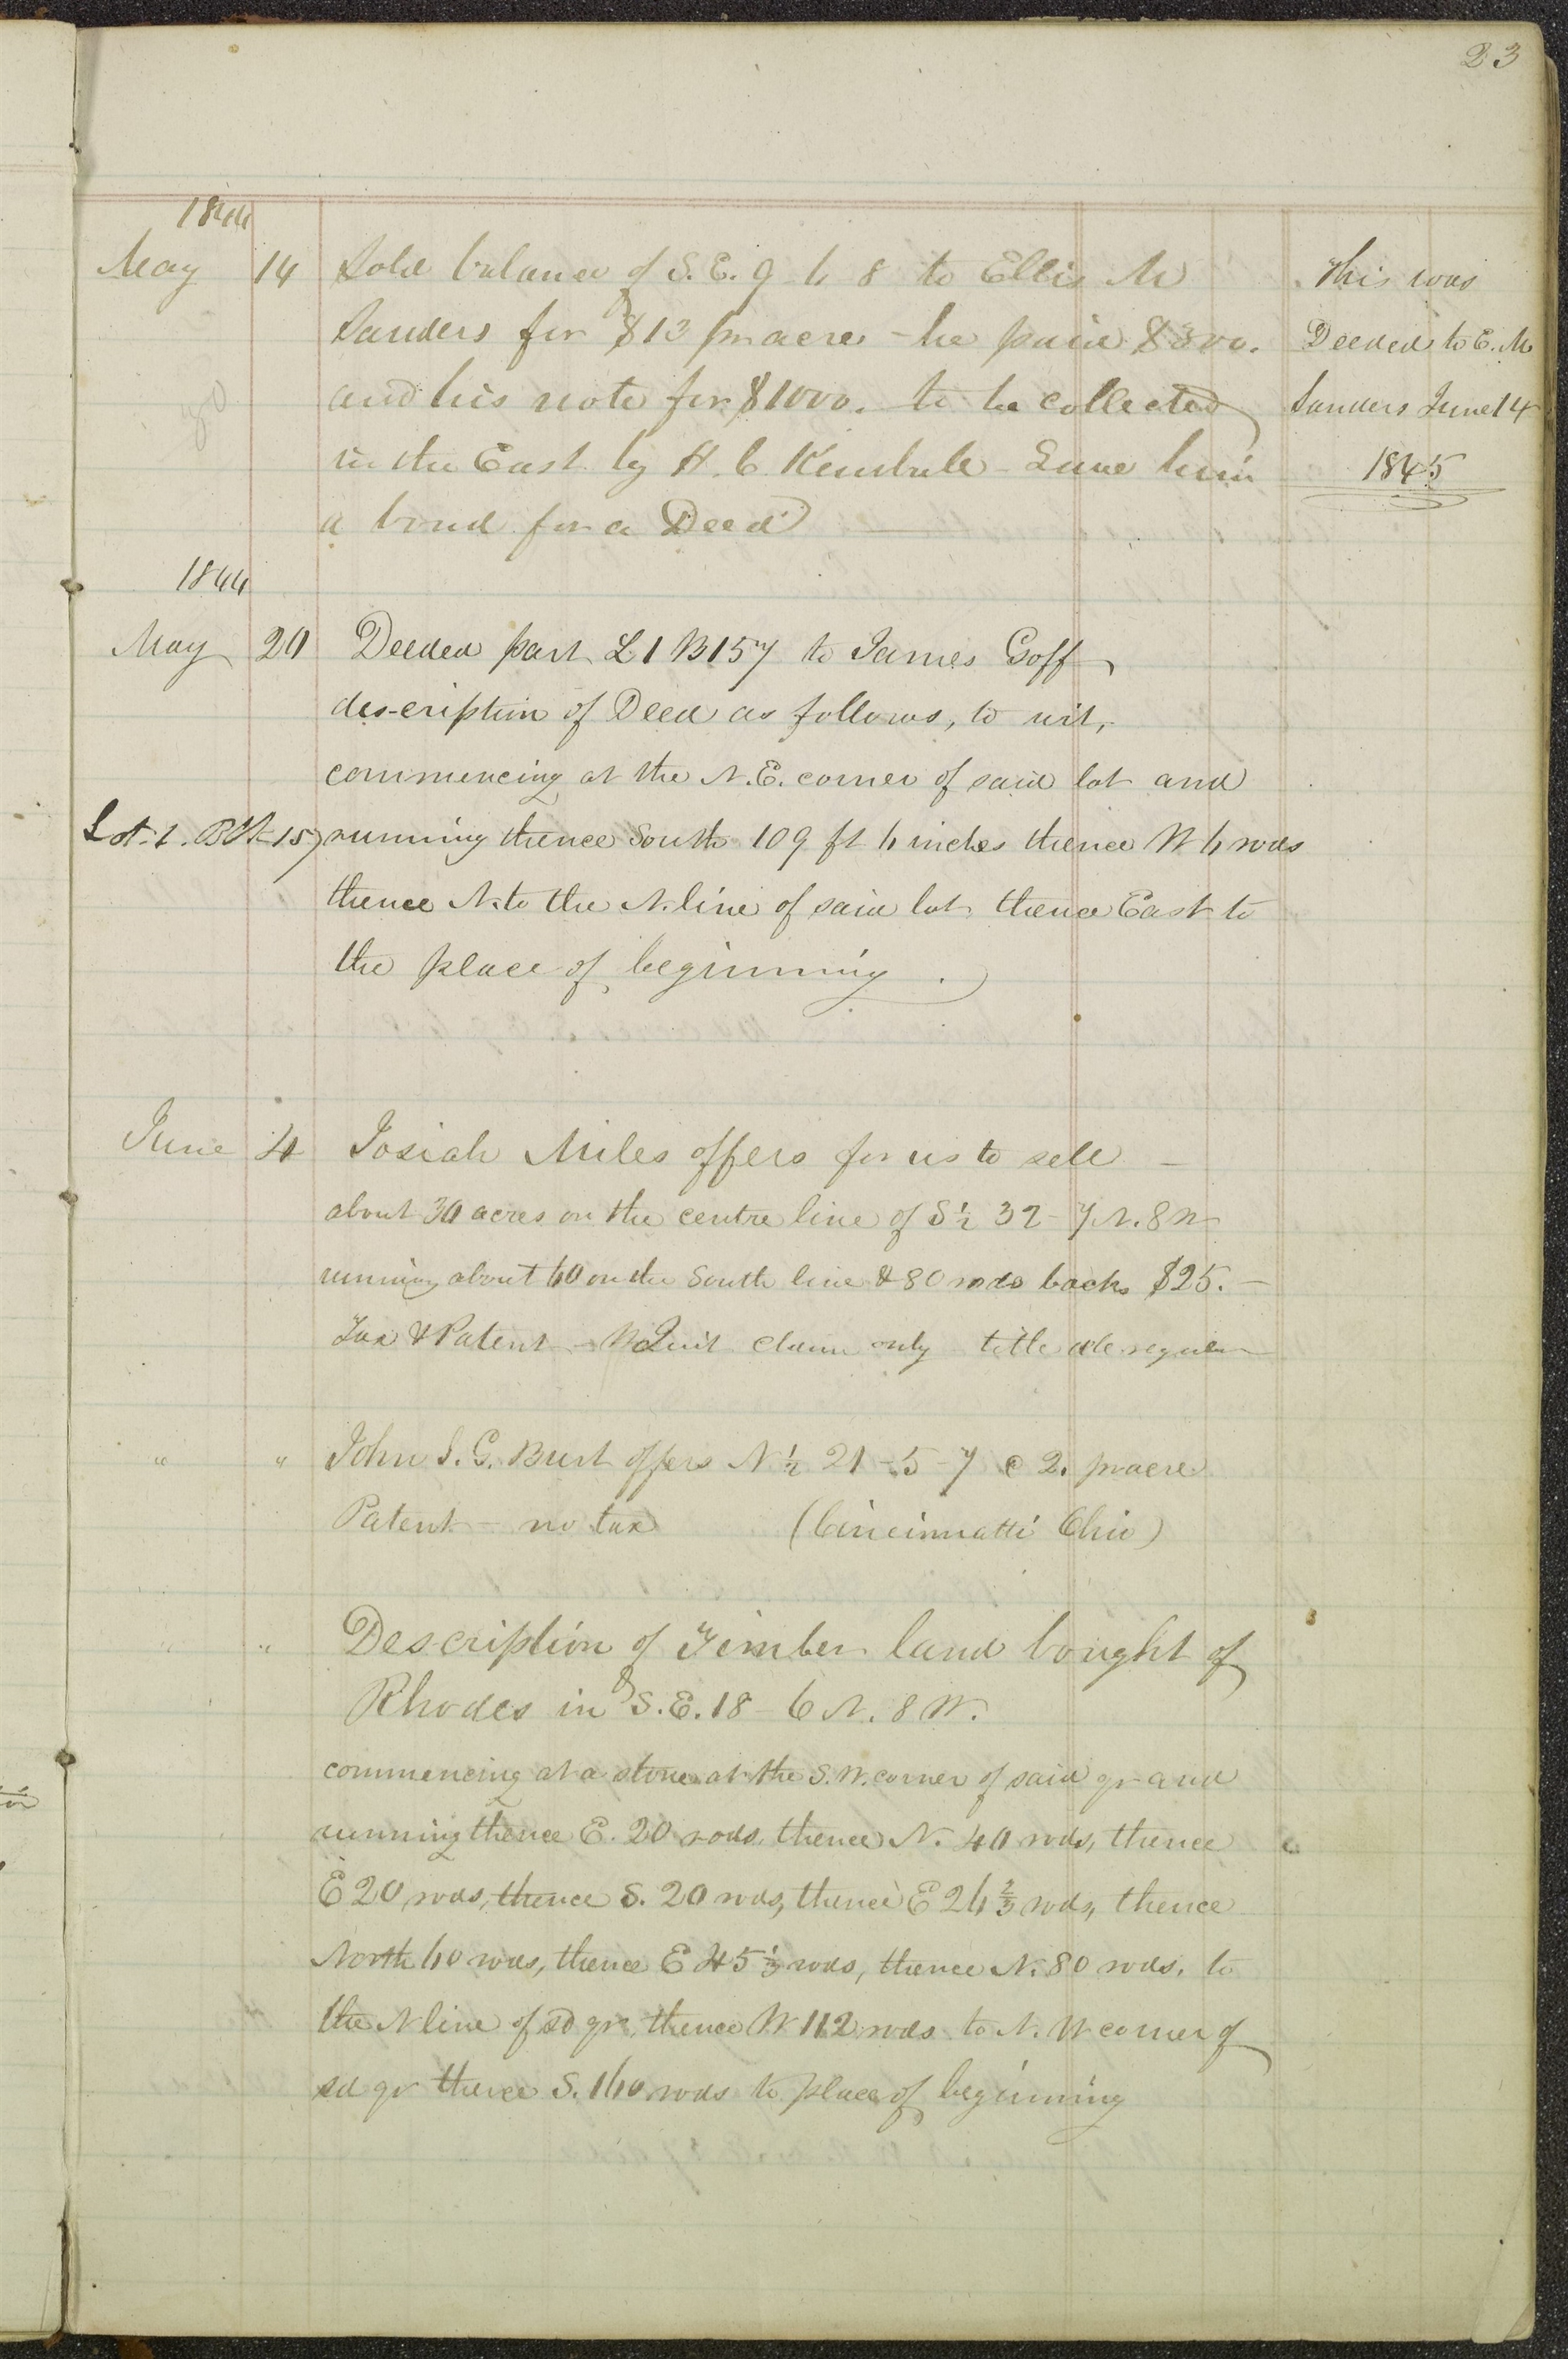 23
1844
May 14 Sold balance of S.E. 9 6 8 to Ellis M
Sanders for $13 pr acre - he paid $300.
and his note for $1000. to be collected
in the East by H. C. Kimball - Gave him
a bond for a Deed
This was
Deeded to E. M
Sanders June 14
1845
1844
May 20 Deeded part L 1 B 157 to James Goff
description of Deed as follows, to wit,
commencing at the N.E. corner of said lot and
Lot. 1. Blk 157 running thence South 109 ft 6 inches thence W 6 rods
thence N. to the N. line of said lot thence East to
the place of beginning.
June 4 Josiah Miles offers for us to sell -
about 30 acres on the centre line of S ½ 32 - 7 N. 8 W
running about 60 on the South line & 80 rods back $25. -
Tax & Patent - Quit claim only title regular
" " John S. G. Burt offers N ½ 21 - 5 - 7 @ 2. pr acre
Patent - no tax (Cincinnatti Ohio)
" " Description of Timber land bought of
Rhodes in S.E. 18 - 6 N. 8 W.
commencing at a stone at the S.W. corner of said qr and
running thence E. 20 rods, thence N. 40 rods, thence
E 20 rods, thence S. 20 rods, thence E 26 ⅔ rods, thence
North 60 rods, thence E 45 ⅓ rods, thence N. 80 rods, to
the N line of sd qr, thence W 112 rods to N. W corner of
sd qr thence S. 160 rods to place of beginning